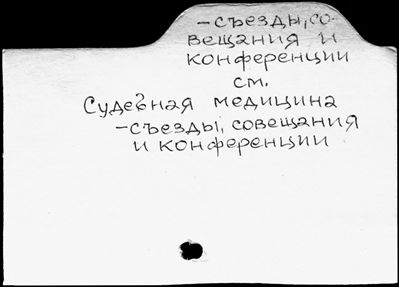 –съезды, со-
вещания и
конференции
см.
Судебная медицина
–съезды, совещания
и конференции